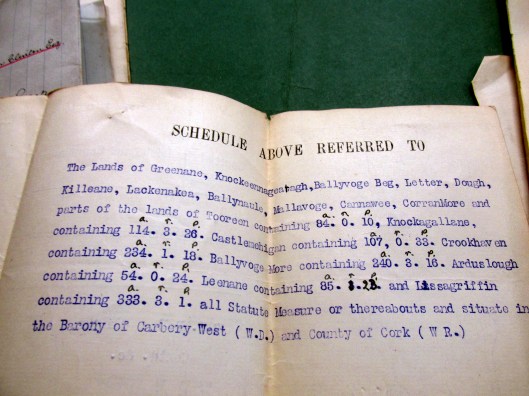 SCHEDULE ABOVE REFERRED TO
The Lands of Greenane, Knockeennageatagh, Ballyvoge Beg, Letter, Dough,
Killeane, Lackenakea, Ballynaule, Mallavoge, Cannawee, CorranMore and
parts of the lands of Tooreen containing 84. 0. 10, Knockagallane,
a. r. p. a. r. p.
containing 114. 3. 26. Castlemehigan containing 107, 0. 33. Crookhaven
a. r. p. a. r. p.
containing 234. 1. 18. Ballyvoge More containing 240. 3. 16. Arduslough
a. r. p. a. r. p.
containing 54. 0. 24. Leenane containing 85. 3. 28. and Lissagriffin
a. r. p.
containing 333. 3. 1. all Statute Measure or thereabouts and situate in
the Barony of Carbery West ( W.D.) and County of Cork ( W R.)